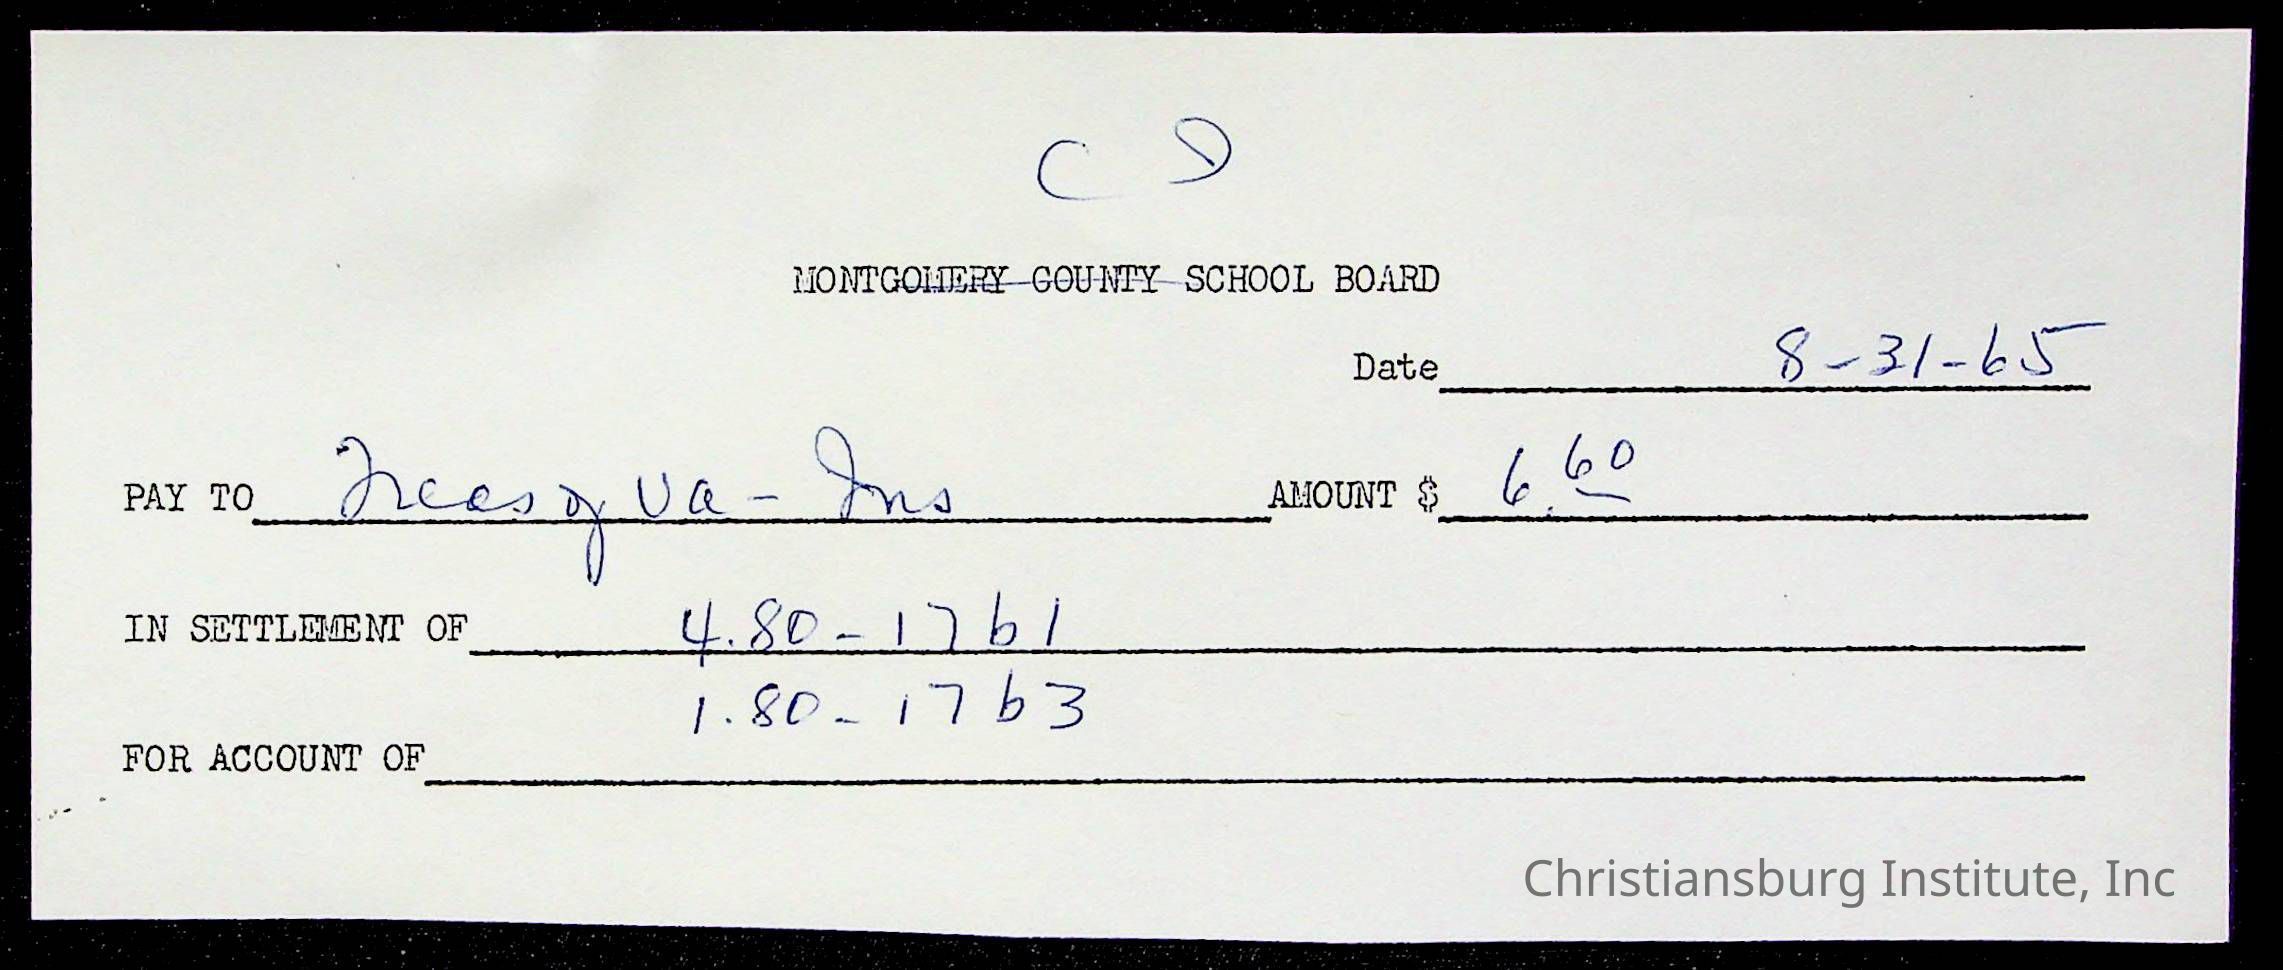 C D
MONTGOMERY COUNTY SCHOOL BOARD
Date 8-31-65
PAY TO Treas of Va - Ins AMOUNT $ 6.60
IN SETTLEMENT OF 4.80 - 1761
1.80 - 1763
FOR ACCOUNT OF
Christiansburg Institute, Inc